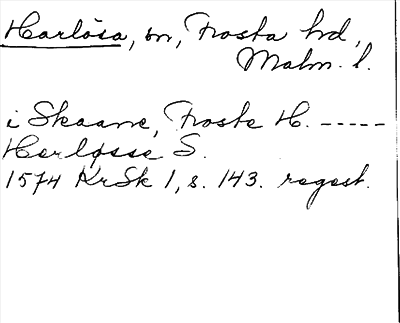 Harlösa, sn, Frosta hd,
Malm. l.
i Skaane, Froste H. -----
Herløsse S.
1574 KrSk 1, s. 143. regest.